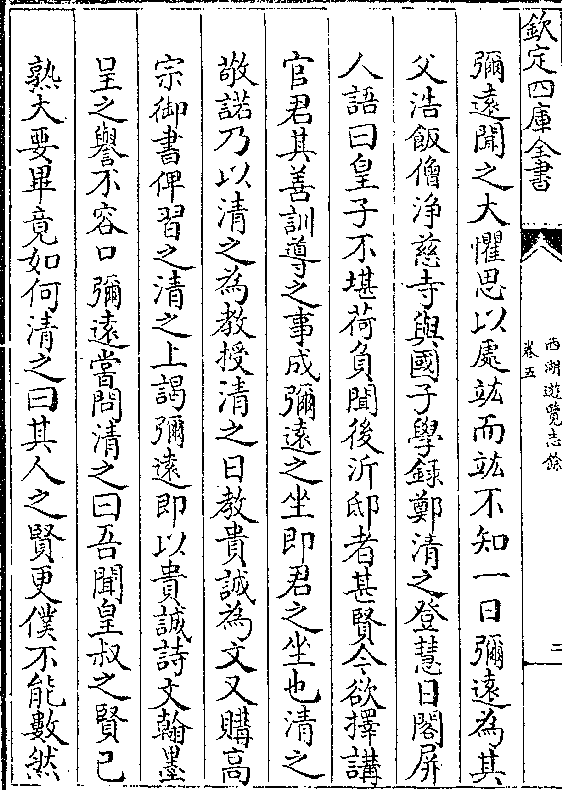 欽定四庫全書
西湖遊覽志餘
卷五
二
彌遠聞之大懼思以處竑而竑不知一日彌遠為其
父浩飯僧浄慈寺與國子學録鄭清之登慧日閣屏
人語曰皇子不堪荷負聞後沂邸者甚賢今欲擇講
官君其善訓導之事成彌遠之坐即君之坐也清之
敬諾乃以清之為教授清之日教貴誠為文又購高
宗御書俾習之清之上謁彌遠即以貴誠詩文翰墨
呈之譽不容口彌遠嘗問清之曰吾聞皇叔之賢已
熟大要畢竟如何清之曰其人之賢更僕不能數然